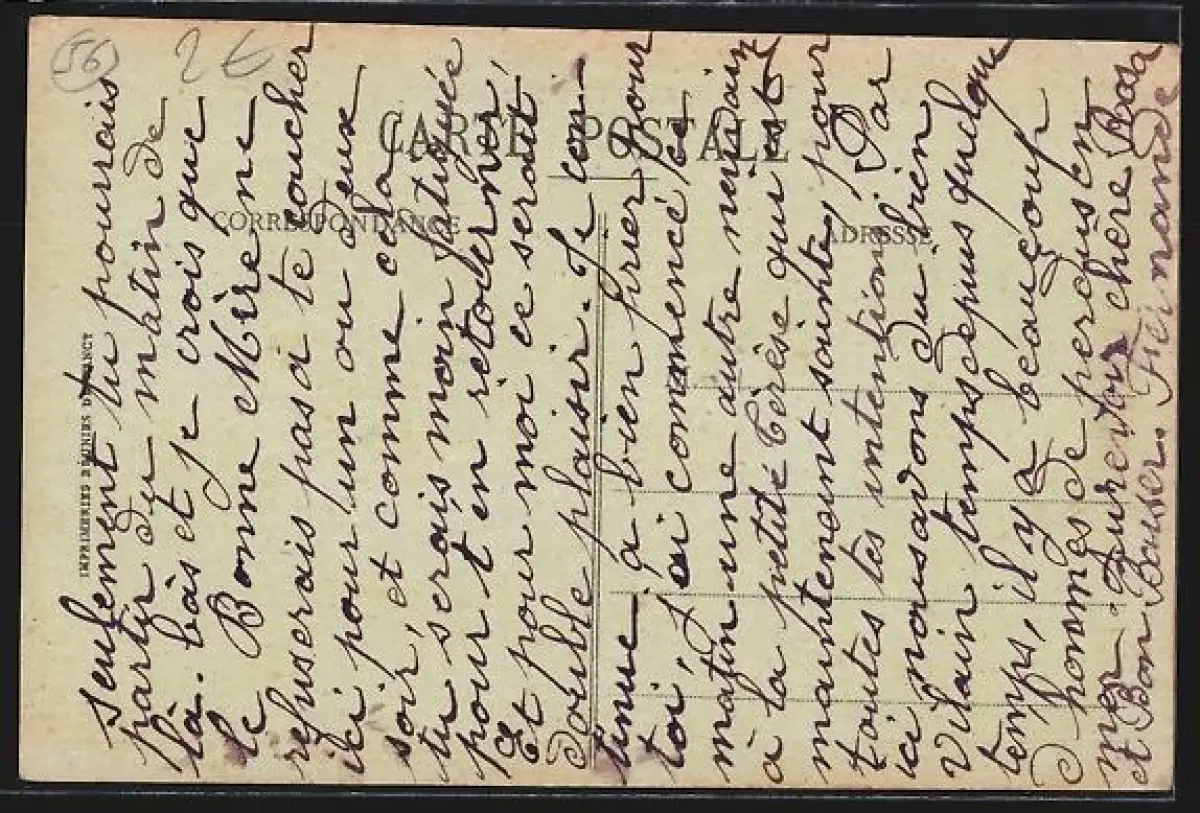 (56)
2 €
CARTE POSTALE
CORRESPONDANCE
ADRESSE
IMPRIMERIES REUNIES DE NANCY
seulement tu pourrais
partir du matin de
là. bàs et je crois que
le Bonne Mère ne
refuserais pas à te coucher
ici pour un ou deux
soir, et comme cela
tu serais moin fatiguée
pour t'en retourner,
Et pour moi ce serait
double plaisir. Je con-
tinue, à bien prier pour
toi, j'ai commencé ce
matin une autre neuvaine
à la petite Térèse qui est
maintenant sainte, pour
toutes tes intentions, Par
ici nous avons du bien
vilain temps depuis quelque
temps, il y a beaucoup
d'hommes de perdus en
mer. Aurevoir chère Rosa
et Bon Baiser. Fernande